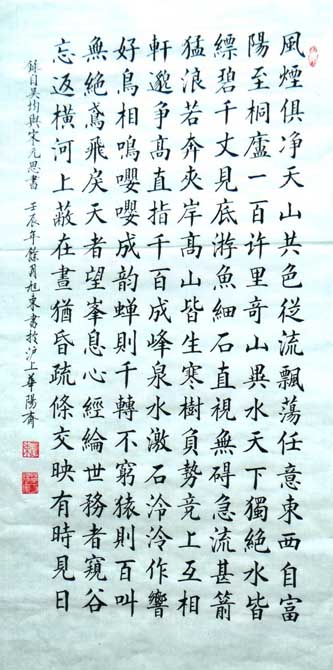 風煙俱净天山共色從流飄蕩任意東西自富
陽至桐廬一百许里奇山異水天下獨絶水皆
縹碧千丈見底游魚細石直視無碍急流甚箭
猛浪若奔夾岸髙山皆生寒樹負勢竞上互相
軒邈争髙直指千百成峰泉水激石泠泠作響
好鳥相鳴嚶嚶成韵蝉則千轉不窮猿則百叫
無絶鳶飛戾天者望峯息心經綸世務者窺谷
忘返横河上蔽在晝猶昏疏條交映有時見日
録自吴均與宋元思書 壬辰年餘月旭東書於沪上華陽齋